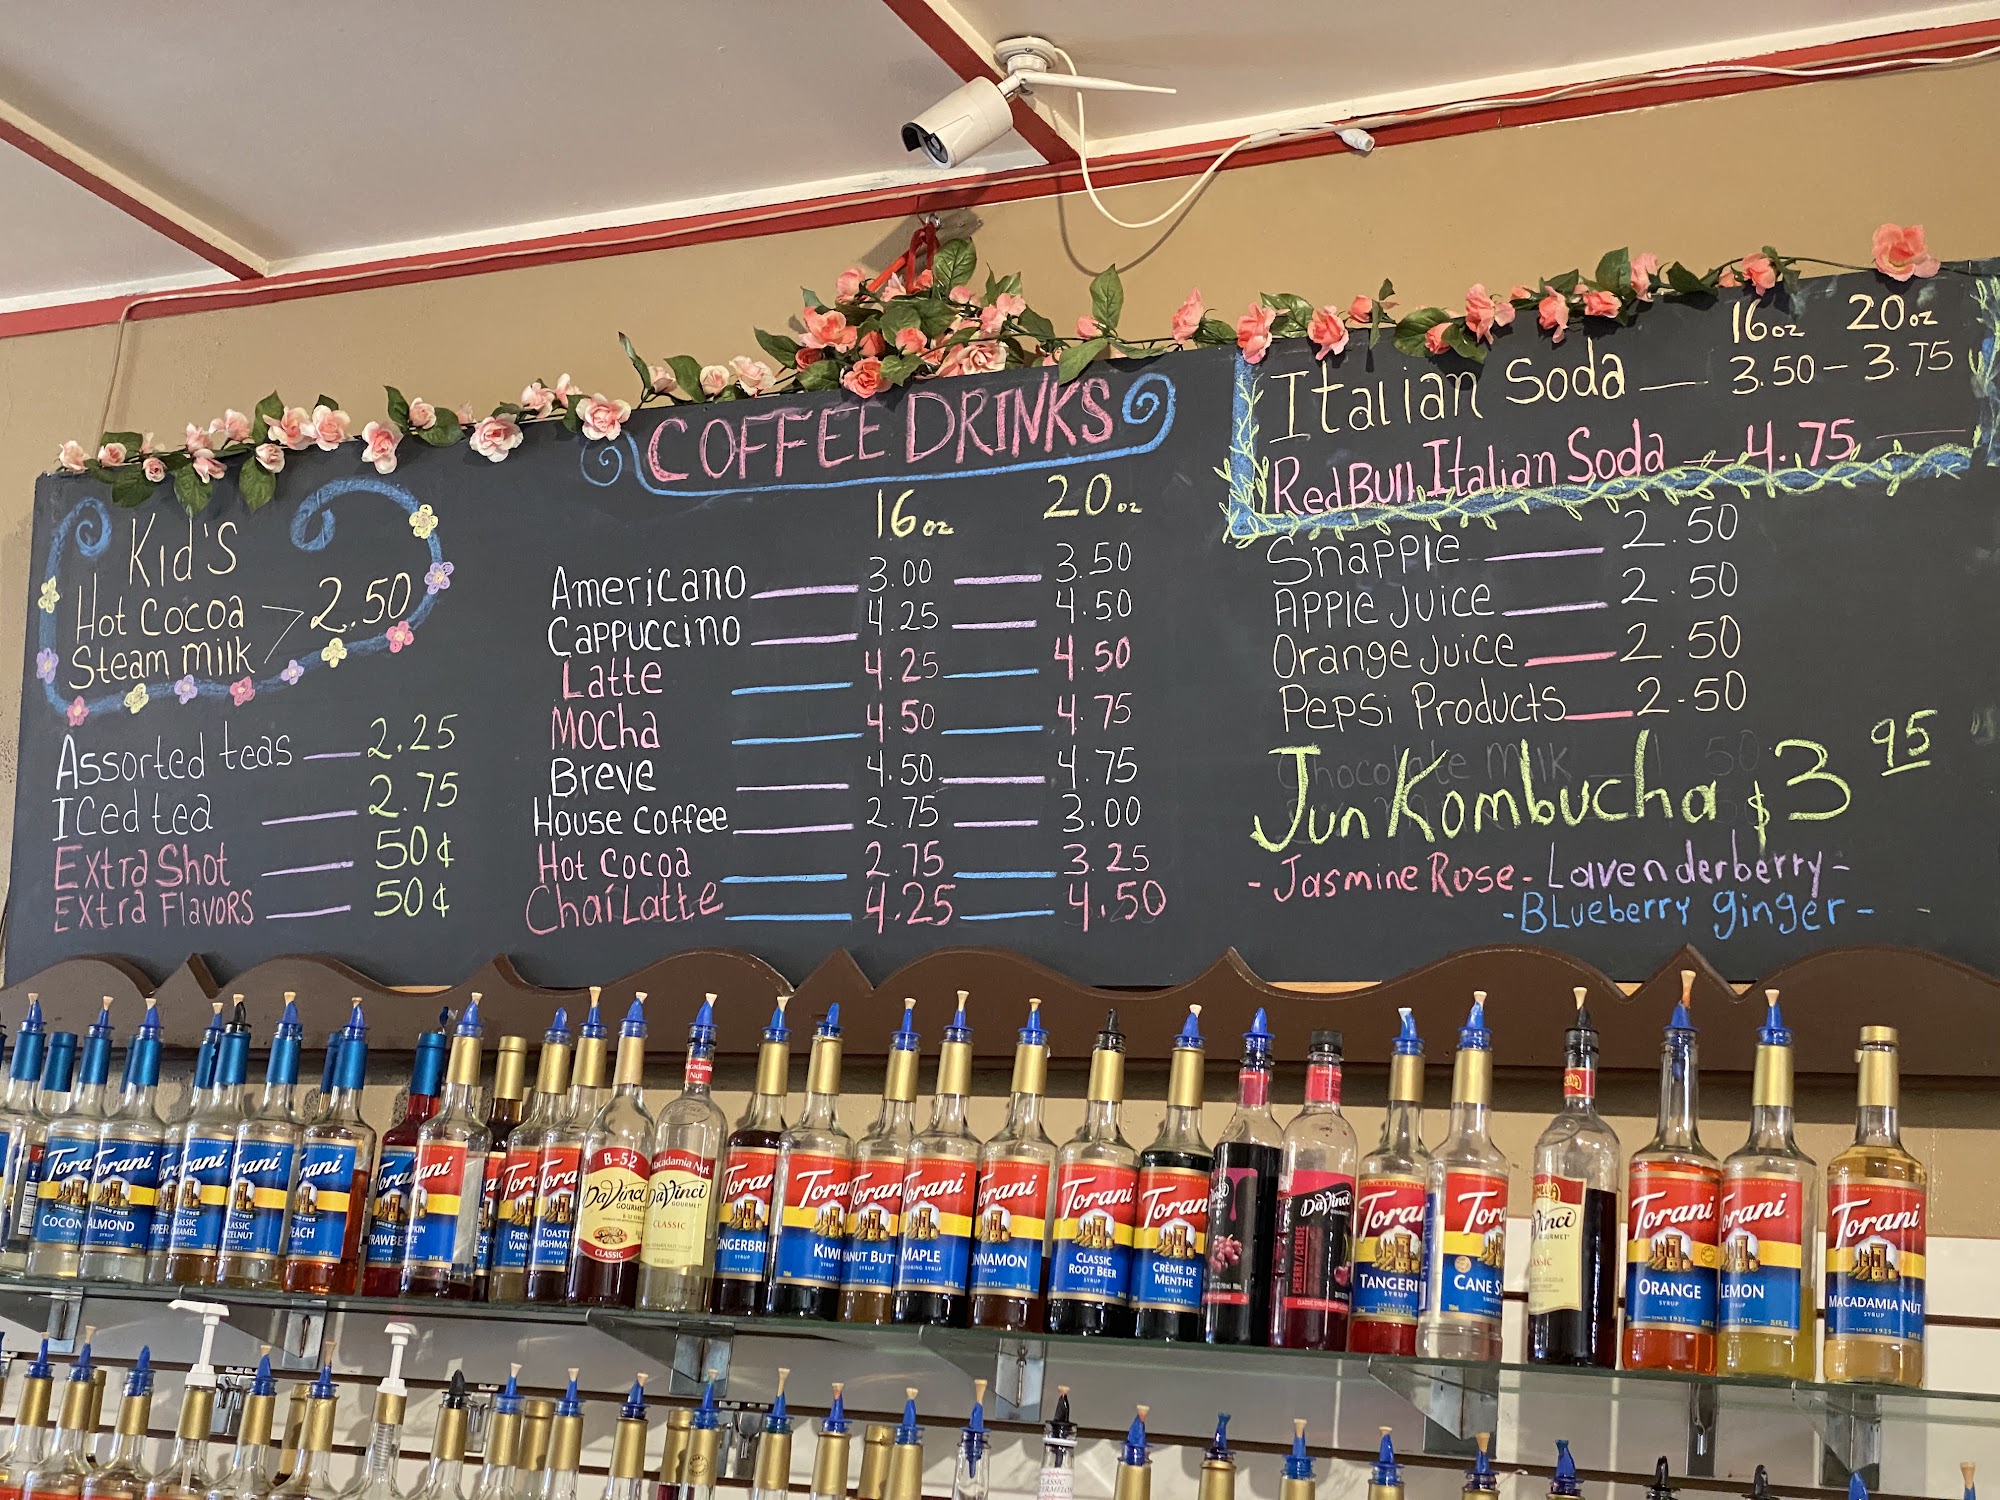 Kid's
Hot Cocoa
Steam milk
2.50
Assorted teas 2.25
Iced tea 2.75
Extra Shot 50¢
Extra Flavors 50¢
COFFEE DRINKS
16oz 20oz
Americano 3.00 3.50
Cappuccino 4.25 4.50
Latte 4.25 4.50
Mocha 4.50 4.75
Breve 4.50 4.75
House coffee 2.75 3.00
Hot Cocoa 2.75 3.25
Chai Latte 4.25 4.50
16oz 20oz
Italian Soda — 3.50 – 3.75
Red Bull Italian Soda — 4.75
Snapple 2.50
Apple Juice 2.50
Orange Juice 2.50
Pepsi Products 2.50
Chocolate Milk
Jun Kombucha $3.95
- Jasmine Rose - Lavenderberry -
- Blueberry ginger -
Torani
ALMOND
Torani
Torani
CLASSIC
Torani
CLASSIC
Torani
Torani
Torani
B-52
DaVinci
GOURMET
CLASSIC
Macadamia Nut
DaVinci
GOURMET
CLASSIC
Torani
Torani
KIWI
Torani
Torani
MAPLE
Torani
Torani
CLASSIC
ROOT BEER
SYRUP
Torani
CRÈME DE
MENTHE
SYRUP
DaVinci
CHERRY/CERISE
Torani
Torani
Torani
ORANGE
SYRUP
SINCE 1925
Torani
LEMON
SYRUP
Torani
MACADAMIA NUT
SYRUP
SINCE 1925